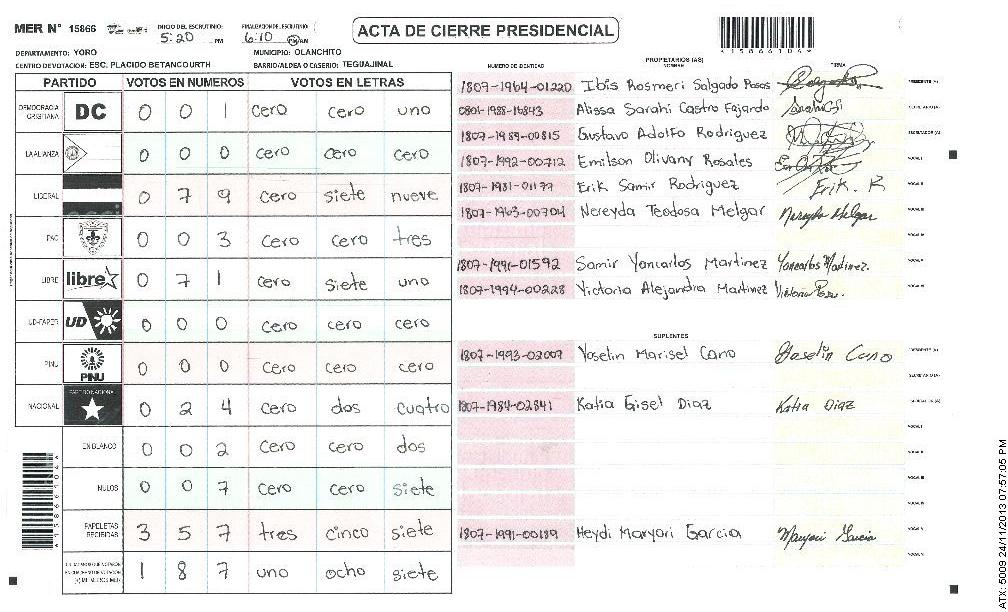 MER N° 15866
INICIO DEL ESCRUTINIO:
5:20 PM
FINALIZACION DEL ESCRUTINIO:
6:10 PM AM
ACTA DE CIERRE PRESIDENCIAL
*15866104*
DEPARTAMENTO: YORO
MUNICIPIO: OLANCHITO
CENTRO DEVOTACION: ESC. PLACIDO BETANCOURTH
BARRIO/ALDEA O CASERIO: TEGUAJINAL
PARTIDO VOTOS EN NUMEROS VOTOS EN LETRAS
DEMOCRACIA CRISTIANA DC 0 0 1 cero cero uno
LA ALIANZA 0 0 0 cero cero cero
LIBERAL 0 7 9 cero siete nueve
PAC 0 0 3 cero cero tres
LIBRE libre 0 7 1 cero siete uno
UD-FAPER UD 0 0 0 cero cero cero
PINU PINU 0 0 0 cero cero cero
NACIONAL PARTIDO NACIONAL 0 2 4 cero dos cuatro
EN BLANCO 0 0 2 cero cero dos
NULOS 0 0 7 cero cero siete
PAPELETAS RECIBIDAS 3 5 7 tres cinco siete
1 8 7 uno ocho siete
NUMERO DE IDENTIDAD
PROPIETARIOS (AS)
NOMBRE
FIRMA
1807-1964-01220 Ibis Rosmeri Salgado Rosas PRESIDENTE (A)
0801-1988-16843 Alissa Sarahi Castro Fajardo SECRETARIO (A)
1807-1989-00815 Gustavo Adolfo Rodriguez ESCRUTADOR (A)
1807-1992-00712 Emilson Olivany Rosales VOCAL I
1807-1981-01177 Erik Samir Rodriguez Erik. R VOCAL II
1807-1963-00704 Nereyda Teodosa Melgar Nereyda Melgar VOCAL III
VOCAL IV
1807-1991-01592 Samir Yancarlos Martinez Yancarlos Martinez. VOCAL V
1807-1994-00228 Victoria Alejandra Martinez VOCAL VI
SUPLENTES
1807-1993-02007 Yoselin Marisel Cano Yoselin Cano PRESIDENTE (A)
SECRETARIO (A)
1807-1984-02841 Katia Gisel Diaz Katia Diaz ESCRUTADOR (A)
VOCAL I
VOCAL II
VOCAL III
VOCAL IV
1807-1991-00189 Heydi Maryori Garcia Maryori Garcia VOCAL V
VOCAL VI
*15866104*
ATX: 5009 24/11/2013 07:57:05 PM